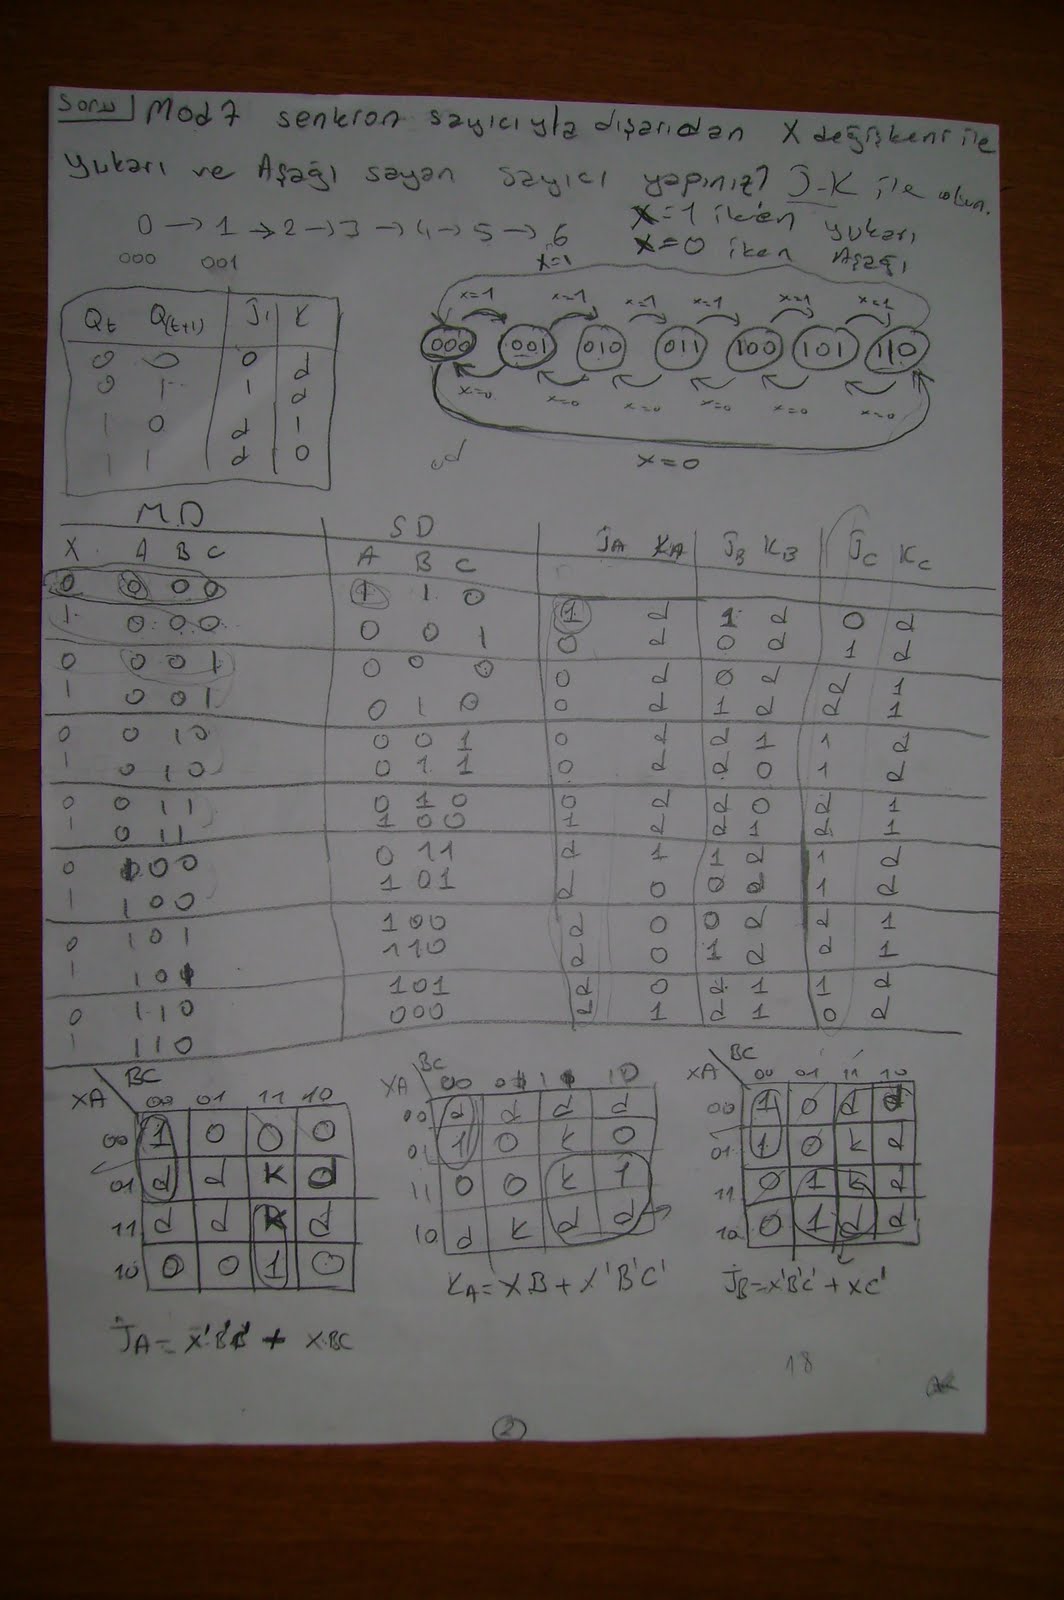 Soru Mod 7 senkron sayıcıyla dışarıdan X değişkeni ile
yukarı ve Aşağı sayan sayıcı yapınız? J-K ile olsun.
0 → 1 → 2 → 3 → 4 → 5 → 6
000 001
X=1 iken yukarı
X=0 iken Aşağı
Qt Q(t+1) J K
0 0 0 d
0 1 1 d
1 0 d 1
1 1 d 0
X=1
x=1 x=1 x=1 x=1 x=1 x=1
000 001 010 011 100 101 110
x=0 x=0 x=0 x=0 x=0 x=0
X=0
MD SD
X A B C A B C JA KA JB KB JC KC
0 0 0 0 1 1 0 1 d 1 d 0 d
1 0 0 0 0 0 1 0 d 0 d 1 d
0 0 0 1 0 0 0 0 d 0 d d 1
1 0 0 1 0 1 0 0 d 1 d d 1
0 0 1 0 0 0 1 0 d d 1 1 d
1 0 1 0 0 1 1 0 d d 0 1 d
0 0 1 1 0 1 0 0 d d 0 d 1
1 0 1 1 1 0 0 1 d d 1 d 1
0 1 0 0 0 1 1 d 1 1 d 1 d
1 1 0 0 1 0 1 d 0 0 d 1 d
0 1 0 1 1 0 0 d 0 0 d d 1
1 1 0 1 1 1 0 d 0 1 d d 1
0 1 1 0 1 0 1 d 0 d 1 1 d
1 1 1 0 0 0 0 d 1 d 1 0 d
XA BC
00 01 11 10
00 1 0 0 0
01 d d K d
11 d d K d
10 0 0 1 0
XA BC
00 01 11 10
00 d d d d
01 1 0 K 0
11 0 0 K 1
10 d K d d
XA BC
00 01 11 10
00 1 0 d d
01 1 0 K d
11 0 1 K d
10 0 1 d d
KA = XB + X'B'C'
JB = X'B'C' + XC'
JA = X'B'B' + XBC
18
2